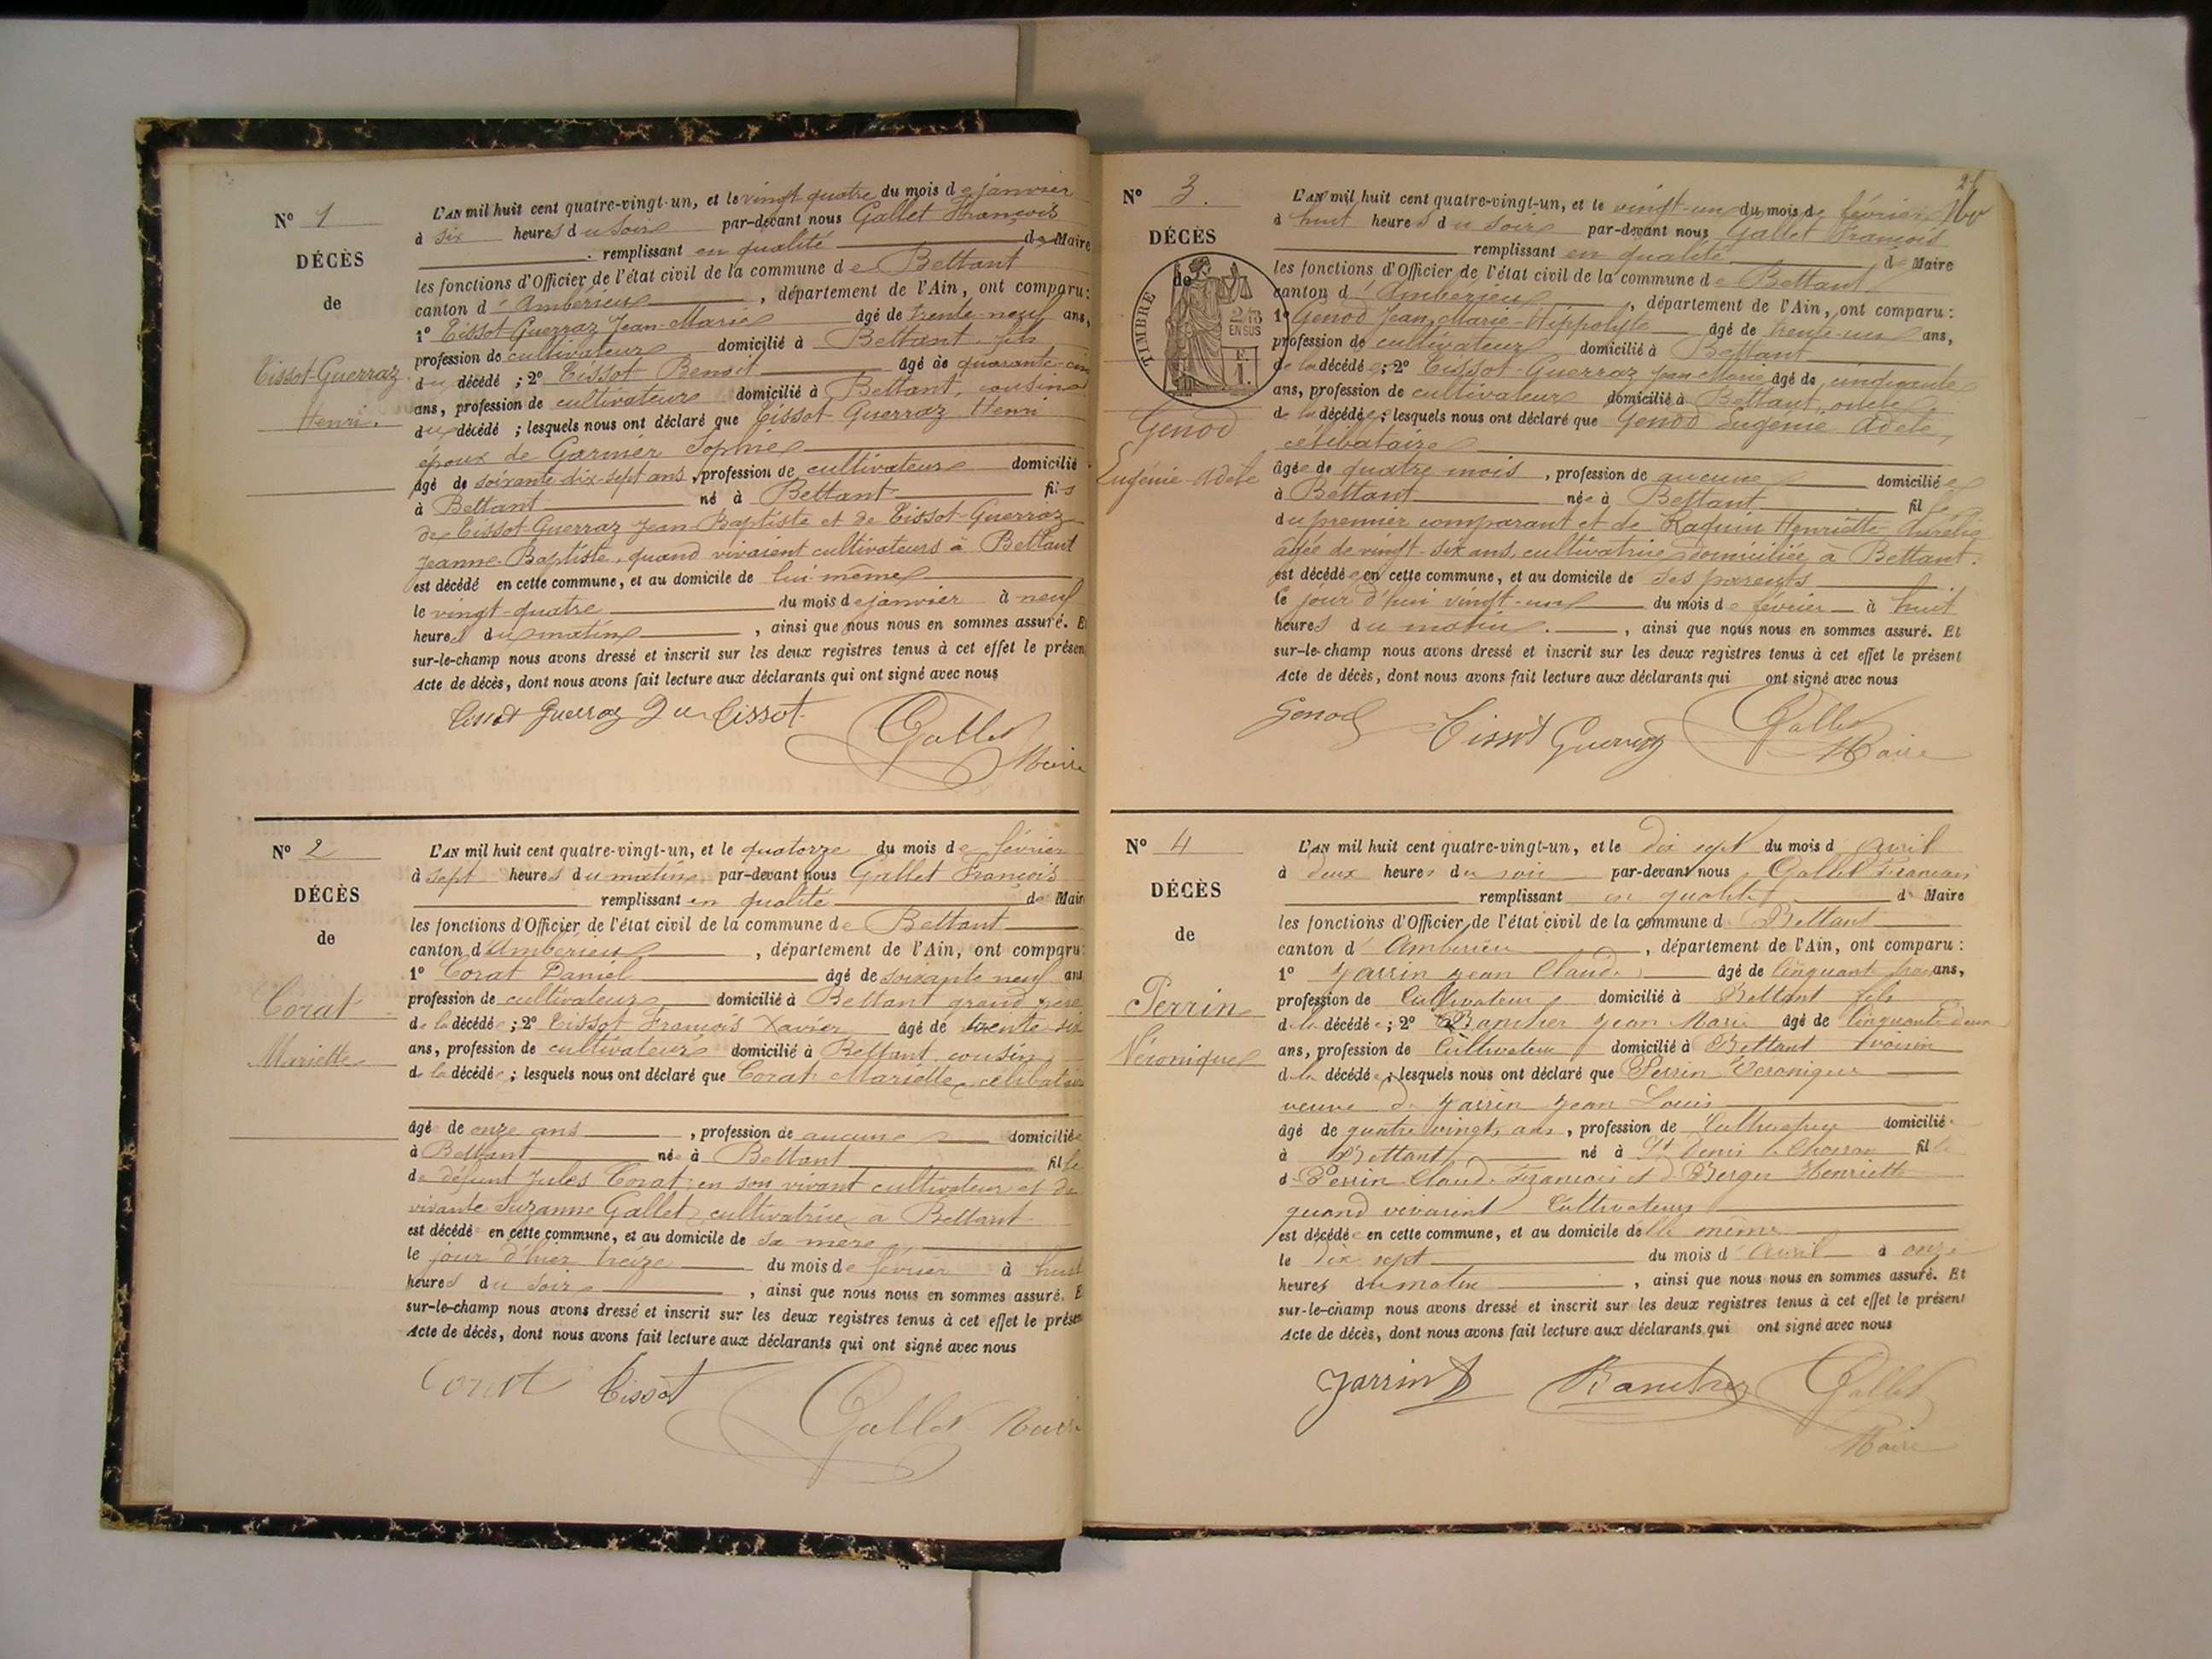 N° 1
DÉCÈS
de
Tissot-Guerraz
Henri.
L'AN mil huit cent quatre-vingt-un, et le vingt quatre du mois de janvier
à six heures du soir par-devant nous Gallet François
remplissant en qualité de Maire
les fonctions d'Officier de l'état civil de la commune de Bettant
canton d'Amberieux, département de l'Ain, ont comparu:
1° Tissot-Guerraz Jean-Marie âgé de trente-neuf ans,
profession de cultivateur domicilié à Bettant, fils
du décédé ; 2° Tissot Benoit âgé de quarante-cinq
ans, profession de cultivateur domicilié à Bettant, cousin
du décédé ; lesquels nous ont déclaré que Tissot-Guerraz Henri
époux de Garnier Sophie
âgé de soixante-dix-sept ans, profession de cultivateur domicilié
à Bettant né à Bettant fils
de Tissot-Guerraz Jean-Baptiste et de Tissot-Guerraz
Jeanne-Baptiste, quand vivaient cultivateurs à Bettant
est décédé en cette commune, et au domicile de lui-même
le vingt-quatre du mois de janvier à neuf
heures du matin, ainsi que nous nous en sommes assuré. Et
sur-le-champ nous avons dressé et inscrit sur les deux registres tenus à cet effet le présent
Acte de décès, dont nous avons fait lecture aux déclarants qui ont signé avec nous
Tissot Guerraz Tissot
Gallet
Maire
N° 2
DÉCÈS
de
Corat
Mariette
L'AN mil huit cent quatre-vingt-un, et le quatorze du mois de février
à sept heures du matin par-devant nous Gallet François
remplissant en qualité de Maire
les fonctions d'Officier de l'état civil de la commune de Bettant
canton d'Amberieux, département de l'Ain, ont comparu
1° Corat Daniel âgé de soixante neuf ans
profession de cultivateur domicilié à Bettant grand père
de la décédée ; 2° Tissot François Xavier âgé de trente six
ans, profession de cultivateur domicilié à Bettant cousin
de la décédée ; lesquels nous ont déclaré que Corat Mariette, célibataire
âgé de onze ans, profession de aucune domiciliée
à Bettant née à Bettant fille
de défunt Jules Corat, en son vivant cultivateur et de
vivante Suzanne Gallet, cultivatrice à Bettant
est décédé en cette commune, et au domicile de sa mère
le jour d'hier treize du mois de février à huit
heures du soir, ainsi que nous nous en sommes assuré. E
sur-le-champ nous avons dressé et inscrit sur les deux registres tenus à cet effet le présen
Acte de décès, dont nous avons fait lecture aux déclarants qui ont signé avec nous
Corat Tissot
Gallet Maire
N° 3.
DÉCÈS
de
TIMBRE
EN SUS
Genod
Eugénie-Adèle
L'AN mil huit cent quatre-vingt-un, et le vingt-un du mois de février
à huit heures du soir par-devant nous Gallet François
remplissant en qualité de Maire
les fonctions d'Officier de l'état civil de la commune de Bettant
canton d'Amberieux, département de l'Ain, ont comparu :
1° Genod Jean-Marie-Hippolyte âgé de trente-un ans,
profession de cultivateur domicilié à Bettant
de la décédée ; 2° Tissot-Guerraz Jean Marie âgé de cinquante
ans, profession de cultivateur domicilié à Bettant, oncle
de la décédée ; lesquels nous ont déclaré que Genod Eugénie Adèle,
célibataire
âgée de quatre mois, profession de aucune domiciliée
à Bettant née à Bettant fille
du premier comparant et de Raquin Henriette Aurélie
âgée de vingt-six ans, cultivatrice domiciliée à Bettant.
est décédée en cette commune, et au domicile de ses parents
le jour d'hui vingt-un du mois de février à huit
heures du matin, ainsi que nous nous en sommes assuré. Et
sur-le-champ nous avons dressé et inscrit sur les deux registres tenus à cet effet le présent
Acte de décès, dont nous avons fait lecture aux déclarants qui ont signé avec nous
Genod Tissot Guerraz Gallet
Maire
N° 4
DÉCÈS
de
Perrin
Véronique
L'AN mil huit cent quatre-vingt-un, et le dix sept du mois d'avril
à deux heures du soir par-devant nous Gallet François
remplissant en qualité de Maire
les fonctions d'Officier de l'état civil de la commune de Bettant
canton d'Amberieu, département de l'Ain, ont comparu :
1° Jarrin Jean Claude âgé de cinquante trois ans,
profession de Cultivateur domicilié à Bettant fils
de la décédée ; 2° Rancher Jean Marie âgé de cinquante deux
ans, profession de Cultivateur domicilié à Bettant voisin
de la décédée ; lesquels nous ont déclaré que Perrin Veronique
veuve de Jarrin Jean Louis
âgé de quatre vingts ans, profession de Cultivatrice domicilié
à Bettant né à St Denis le Chosson fille
de Perrin Claude François et de Berger Henriette
quand vivaient Cultivateurs
est décédée en cette commune, et au domicile d'elle même
le dix sept du mois d'avril à onze
heures du matin, ainsi que nous nous en sommes assuré. Et
sur-le-champ nous avons dressé et inscrit sur les deux registres tenus à cet effet le présent
Acte de décès, dont nous avons fait lecture aux déclarants qui ont signé avec nous
Jarrin Rancher Gallet
Maire